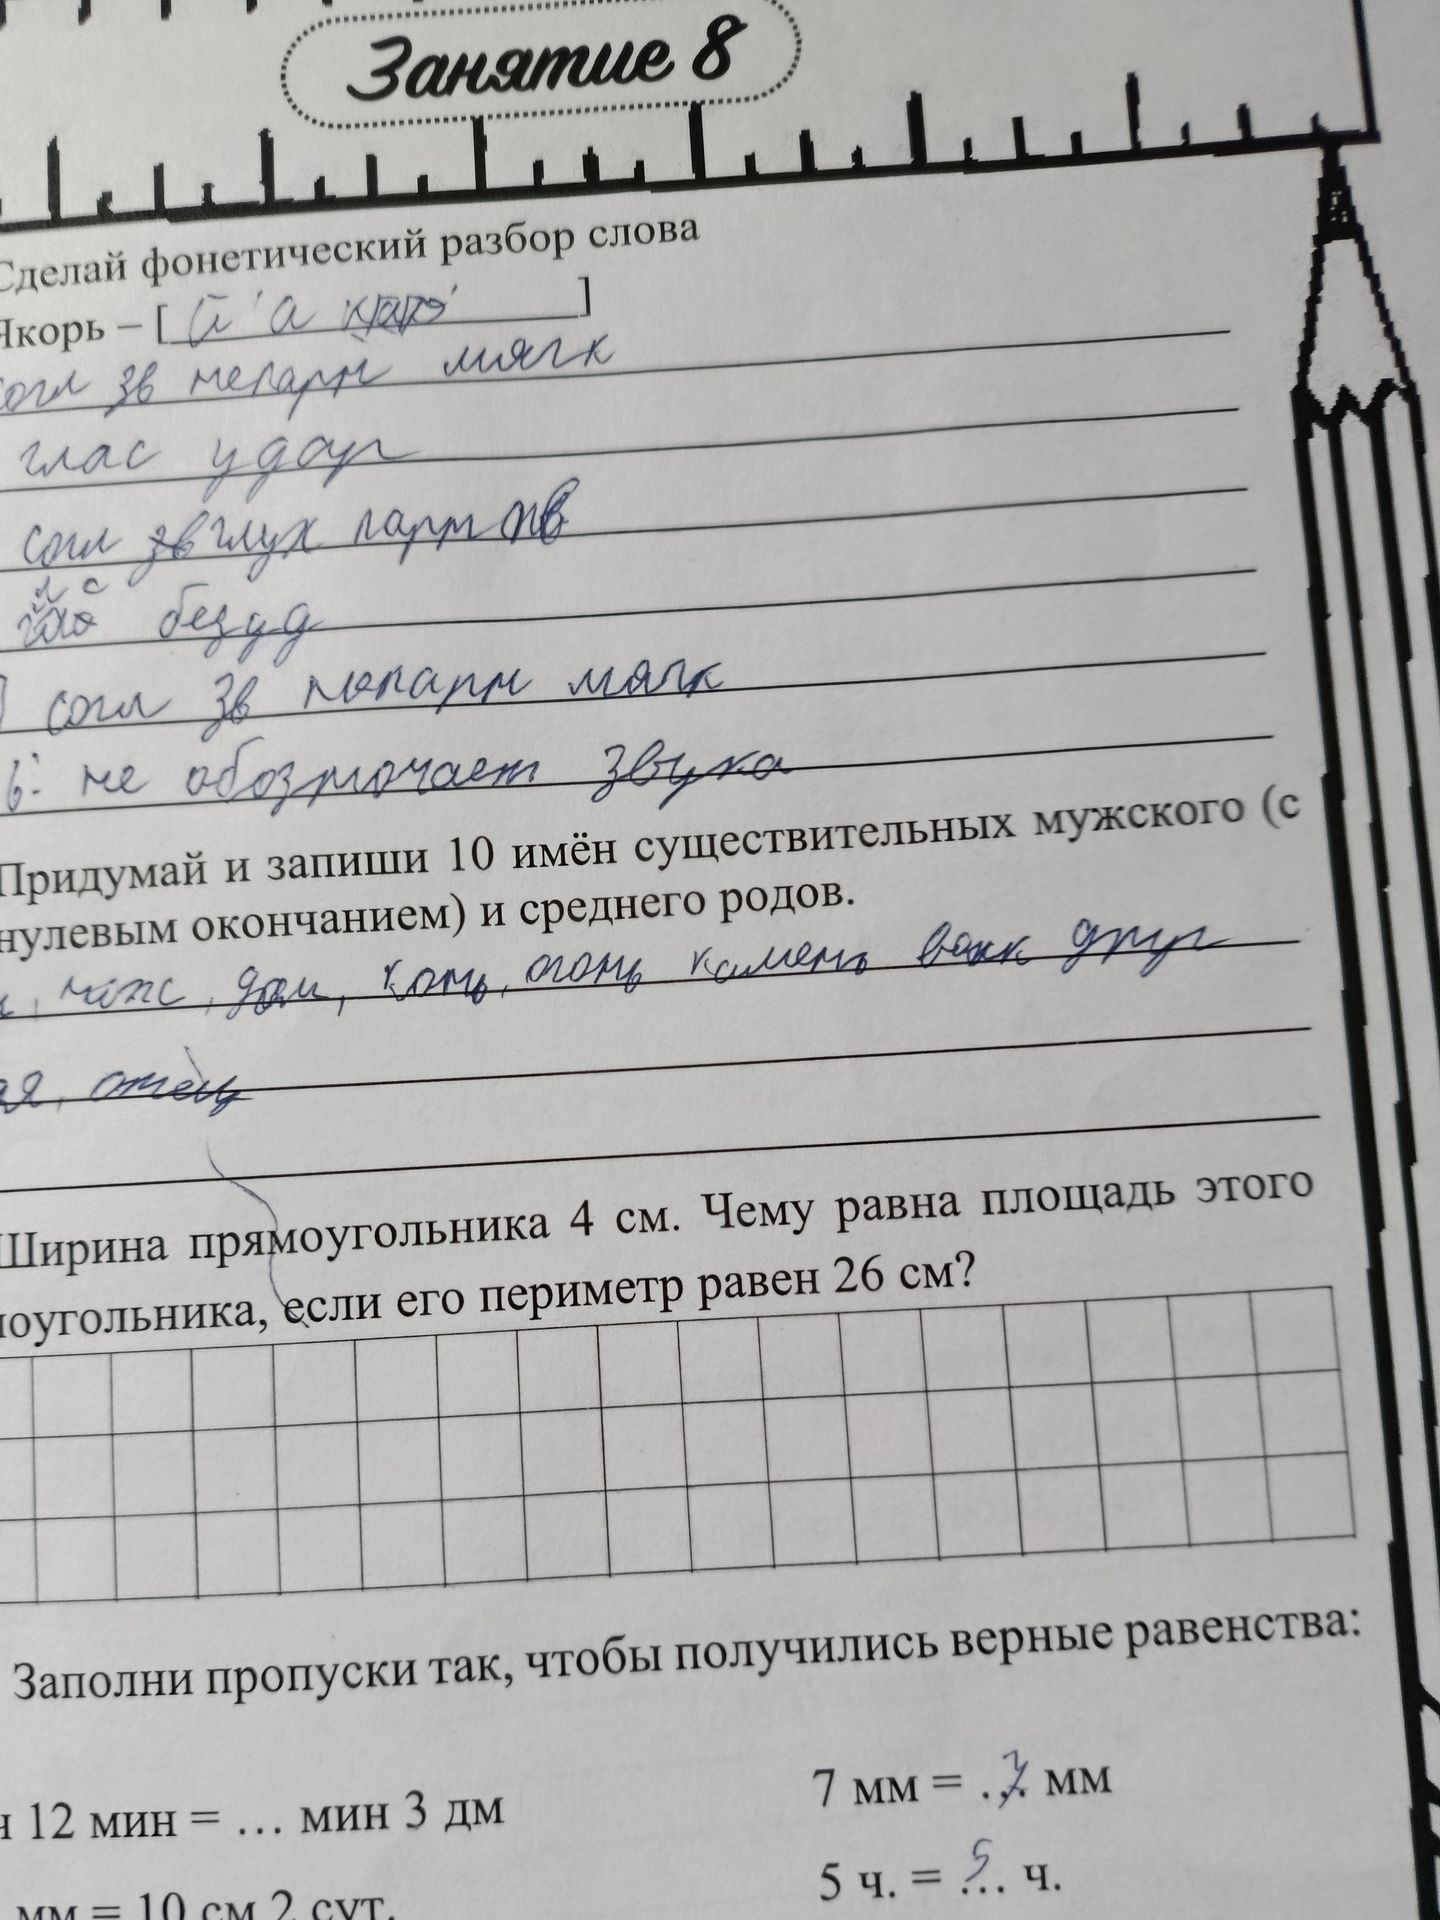 Занятие 8
Сделай фонетический разбор слова
Якорь – [ й' а к ]
согл зв непарн мягк
глас удар
согл глух парн тв
глас безуд
согл зв непарн мягк
ь: не обозначает звука
Придумай и запиши 10 имён существительных мужского (с
нулевым окончанием) и среднего родов.
, нож, дом, конь, огонь камень волк друг
, отец
Ширина прямоугольника 4 см. Чему равна площадь этого
моугольника, если его периметр равен 26 см?
Заполни пропуски так, чтобы получились верные равенства:
7 мм = ..7. мм
ч 12 мин = … мин 3 дм
5 ч. = .5.. ч.
мм = 10 см 2 сут.